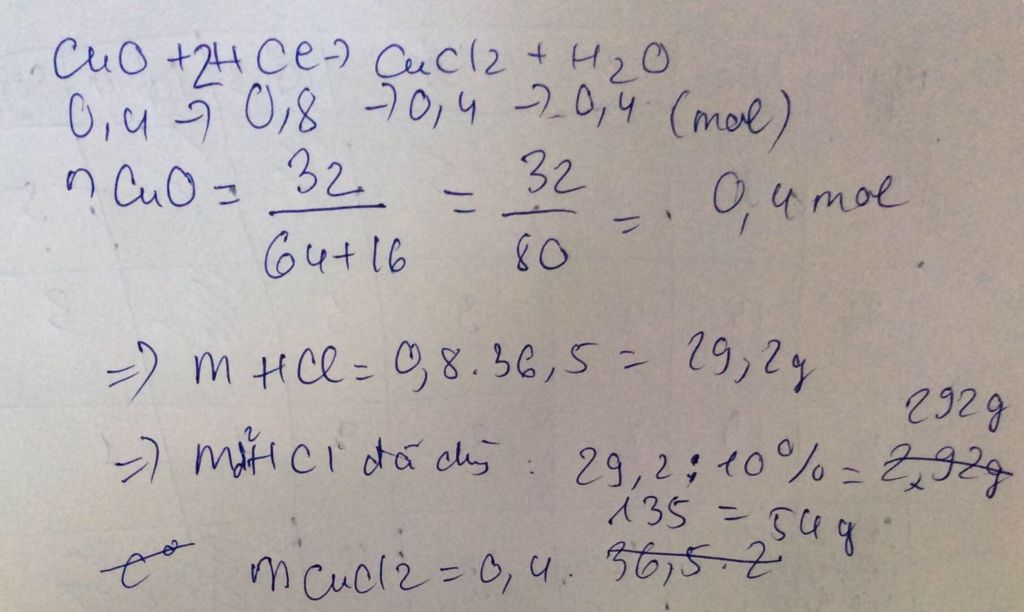 CuO + 2HCl → CuCl2 + H2O
0,4 → 0,8 → 0,4 → 0,4 (mol)
n CuO = 32/(64+16) = 32/80 = 0,4 mol
=> m HCl = 0,8.36,5 = 29,2g
=> m d² HCl đã : 29,2 : 10% = 2,92g 292g
m CuCl2 = 0,4. 36,5.2 135 = 54g